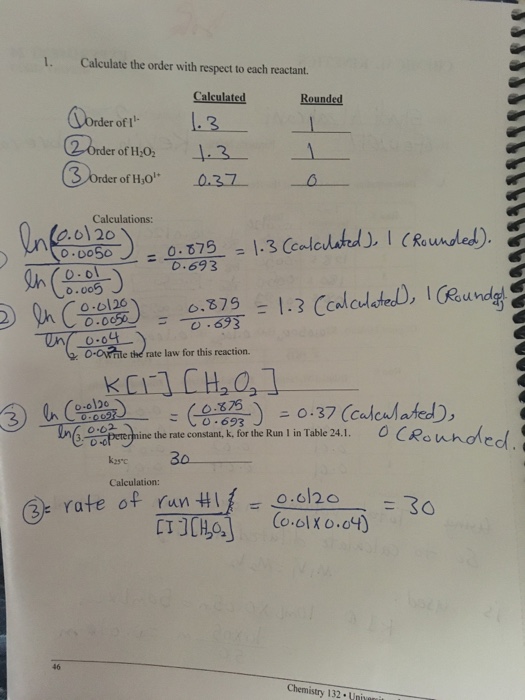 1. Calculate the order with respect to each reactant.
Calculated Rounded
① Order of I¹⁻ 1.3 1
② Order of H₂O₂ 1.3 1
③ Order of H₃O¹⁺ 0.37 0
Calculations:
ln(0.0120/0.0050) / ln(0.01/0.005) = 0.875/0.693 = 1.3 (calculated), 1 (Rounded).
② ln(0.0120/0.0050) / ln(0.04/0.02) = 0.875/0.693 = 1.3 (calculated), 1 (Rounded)
2. Write the rate law for this reaction.
K[I⁻] [H₂O₂]
③ ln(0.0120/0.0093) / ln(0.02/0.01) = (0.875/0.693) = 0.37 (calculated), 0 (Rounded.
3. Determine the rate constant, k, for the Run 1 in Table 24.1.
k25°C 30
Calculation:
③= rate of run #1 / [I⁻][H₂O₂] = 0.0120/(0.01X0.04) = 30
46
Chemistry 132 •